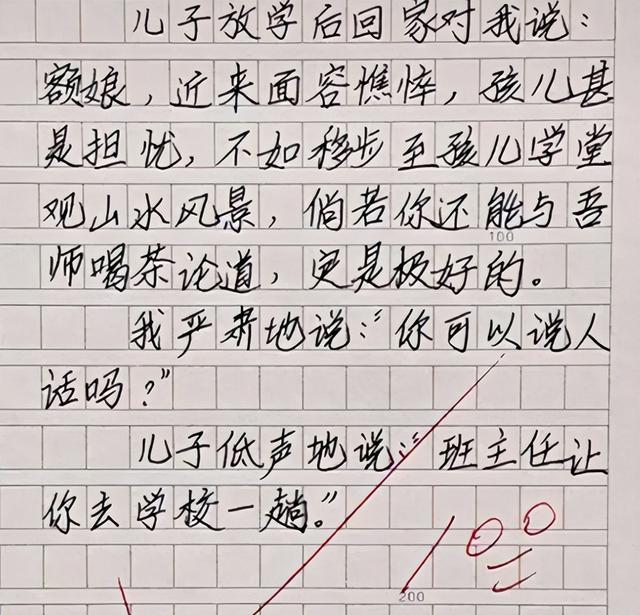 儿子放学后回家对我说：
额娘，近来面容憔悴，孩儿甚
是担忧，不如移步至孩儿学堂
观山水风景，倘若你还能与吾
100
师喝茶论道，更是极好的。
我严肃地说：“你可以说人
话吗？”
儿子低声地说：“班主任让
你去学校一趟。”
100
200